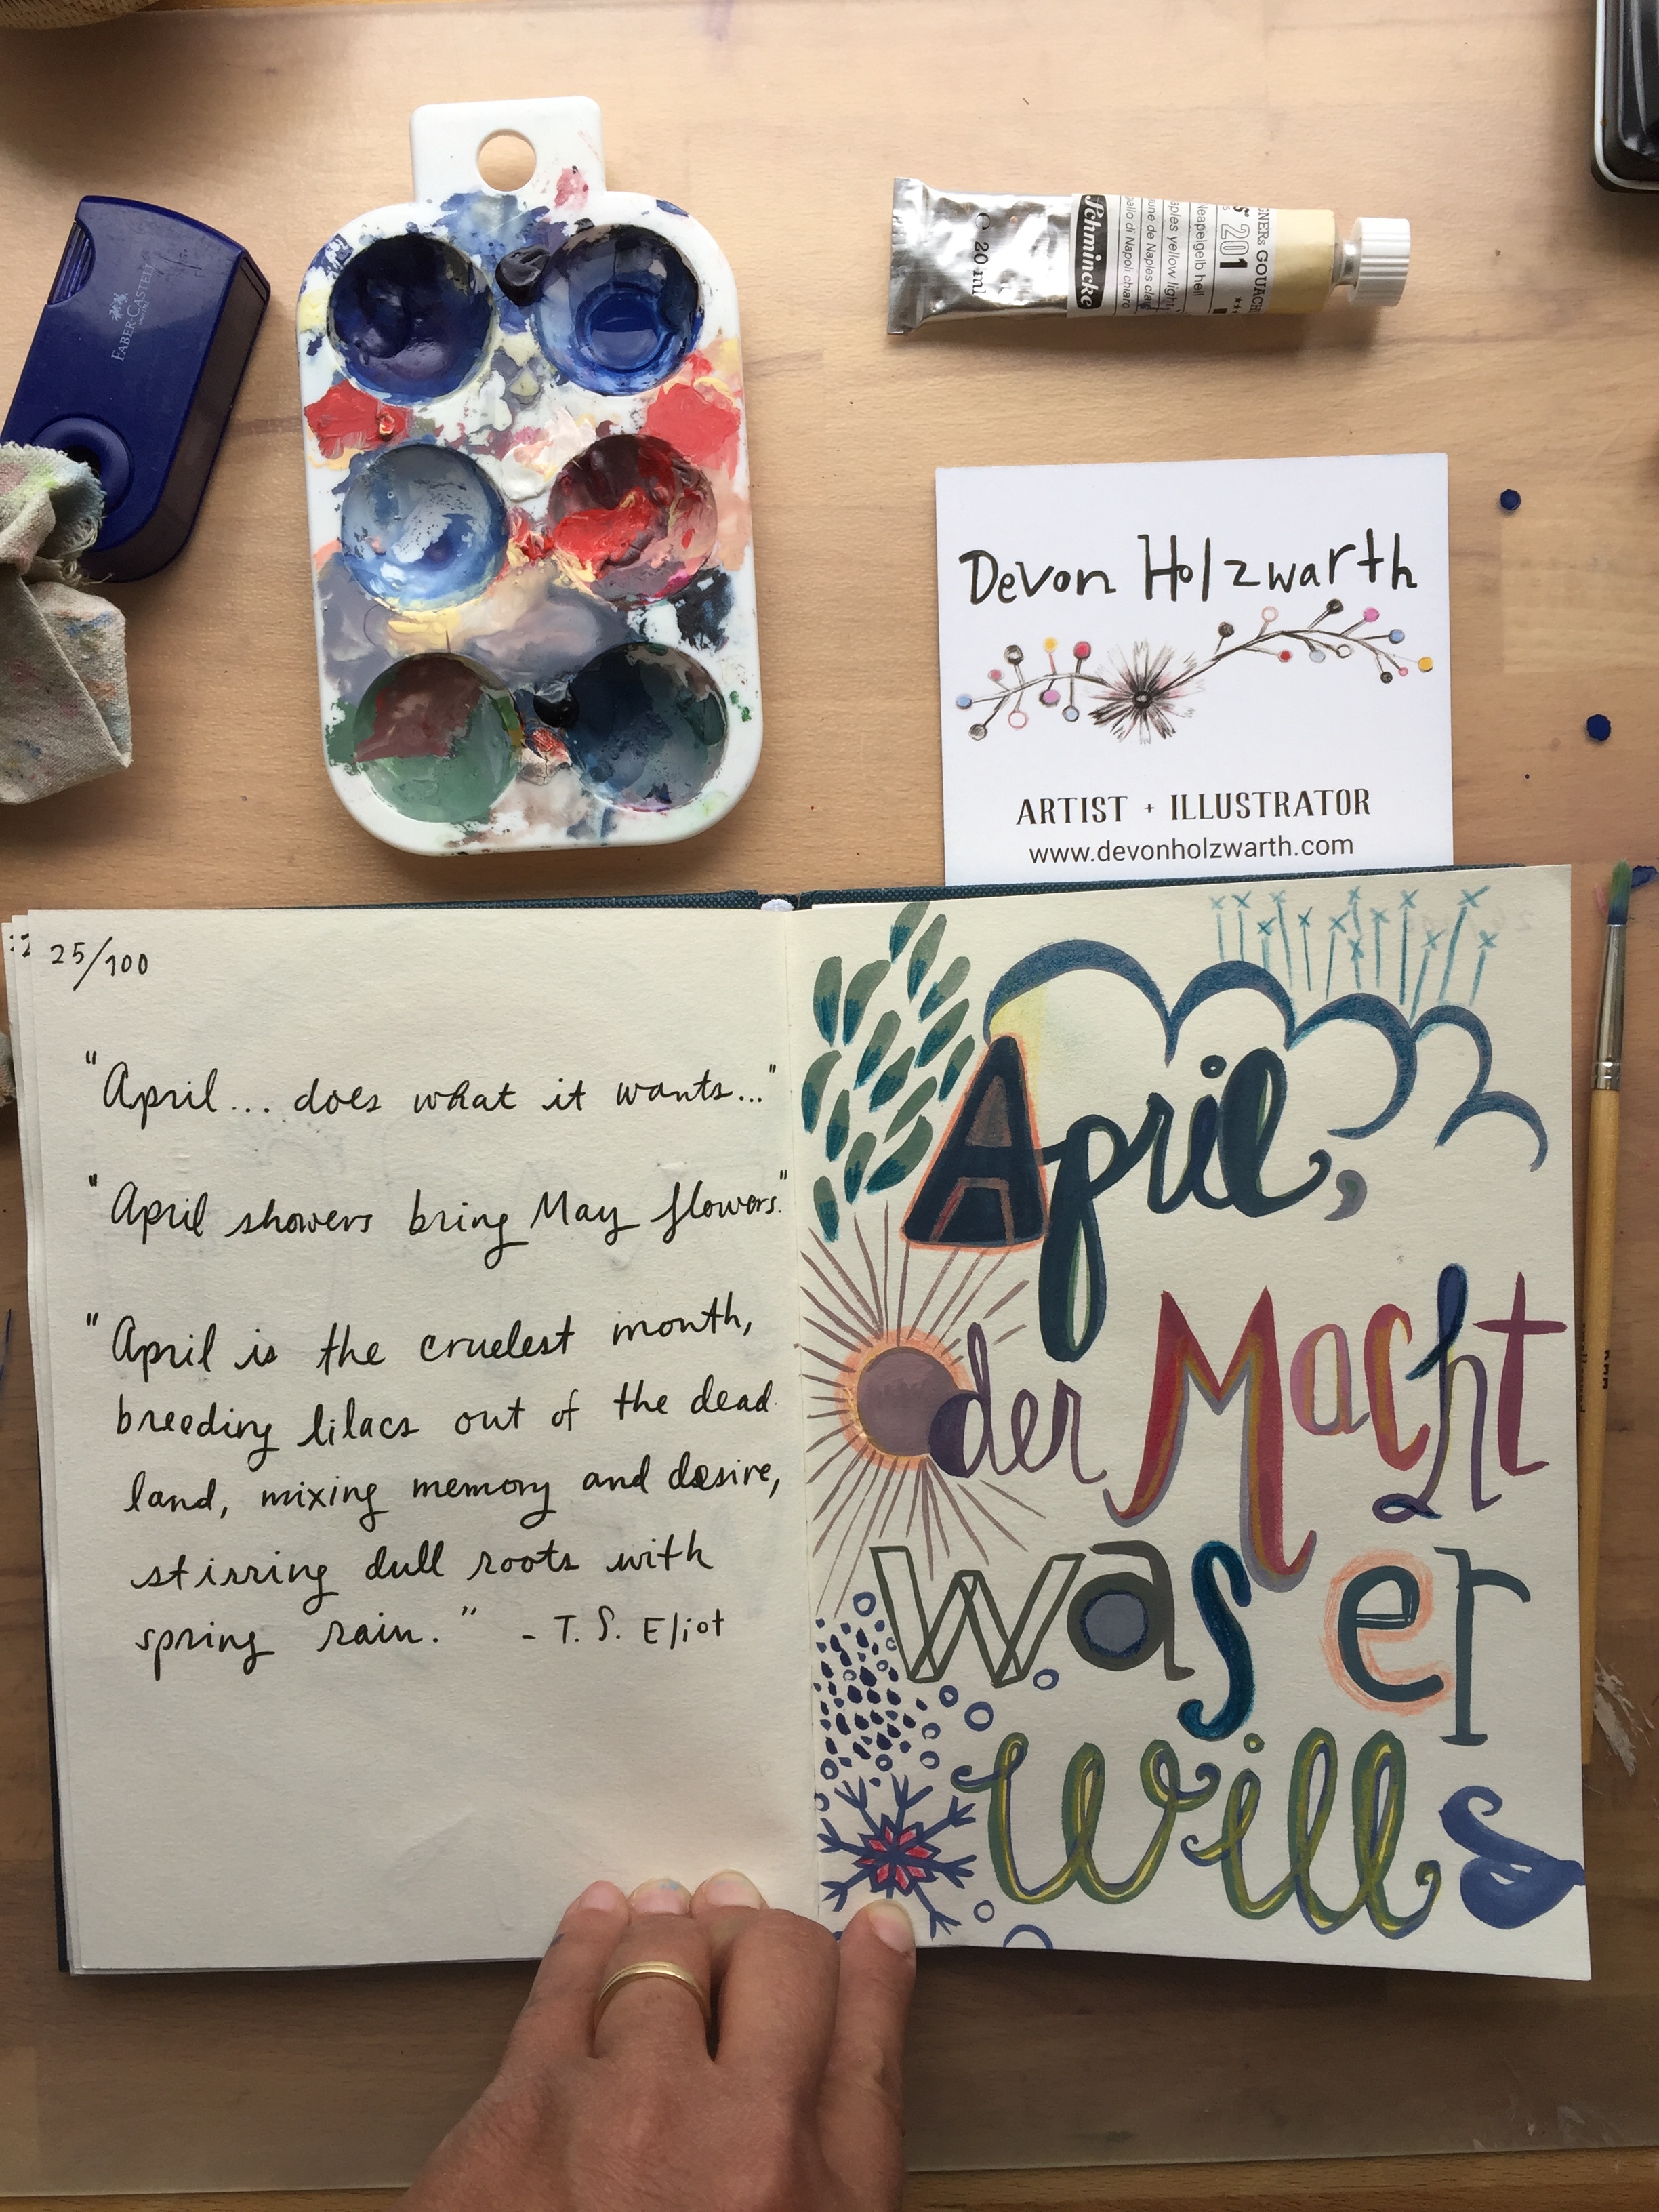 FABER-CASTELL
Schmincke
GNERs GOUACHE
201
Neapelgelb hell
aples yellow light
une de Naples clair
allo di Napoli chiaro
e 20 ml
Devon Holzwarth
ARTIST + ILLUSTRATOR
www.devonholzwarth.com
25/100
"April... does what it wants..."
"April showers bring May flowers."
"April is the cruelest month,
breeding lilacs out of the dead
land, mixing memory and desire,
stirring dull roots with
spring rain." - T. S. Eliot
April,
der Macht
was er
Will
s